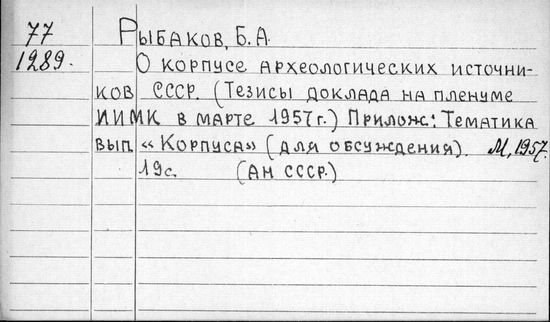 77 Рыбаков, Б.А.
1289. О корпусе археологических источни-
ков СССР. (Тезисы доклада на пленуме
ИИМК в марте 1957г.) Прилож: Тематика
вып. «Корпуса» (для обсуждения). М, 1957.
19с. (АН СССР.)